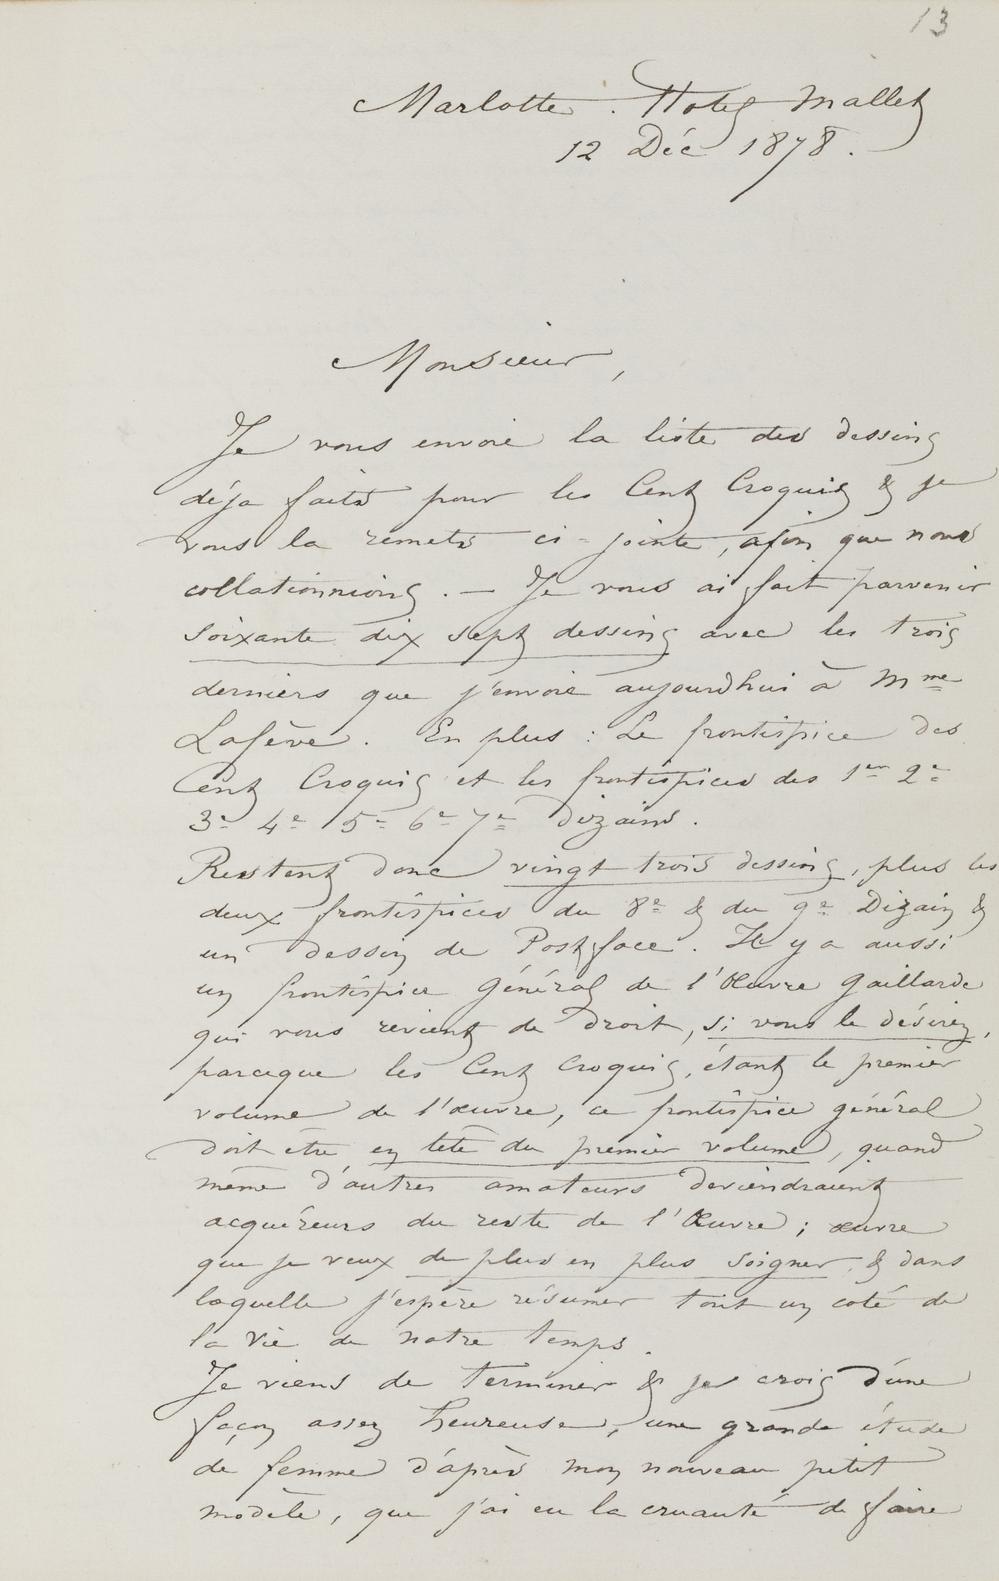 13
Marlotte. Hotel Mallet
12 Déc 1878.
Monsieur,
Je vous envoie la liste des dessins
déja faits pour les Cent Croquis & je
vous la remets ci-jointe, afin que nous
collationnions. — Je vous ai fait parvenir
soixante dix sept dessins avec les trois
derniers que j'envoie aujourdhui à Mme
Lafève. En plus : Le frontispice des
Cent Croquis et les frontispices des 1er 2e
3e 4e 5e 6e 7e Dizains.
Restent donc vingt trois dessins, plus les
deux frontispices du 8e & du 9e Dizain &
un dessin de Postface. Il y a aussi
un frontispice Général de l'Œuvre Gaillarde
qui vous revient de droit, si vous le désirez,
parceque les Cent Croquis, étant le premier
volume de l'œuvre, ce frontispice général
doit etre en tête du premier volume, quand
même d'autres amateurs deviendraient
acquéreurs du reste de l'Œuvre ; œuvre
que je veux de plus en plus soigner & dans
laquelle j'espère résumer tout un coté de
la Vie de notre temps.
Je viens de terminer & je crois d'une
façon assez heureuse, une grande étude
de femme d'après mon nouveau petit
modèle, que j'ai eu la cruauté de faire